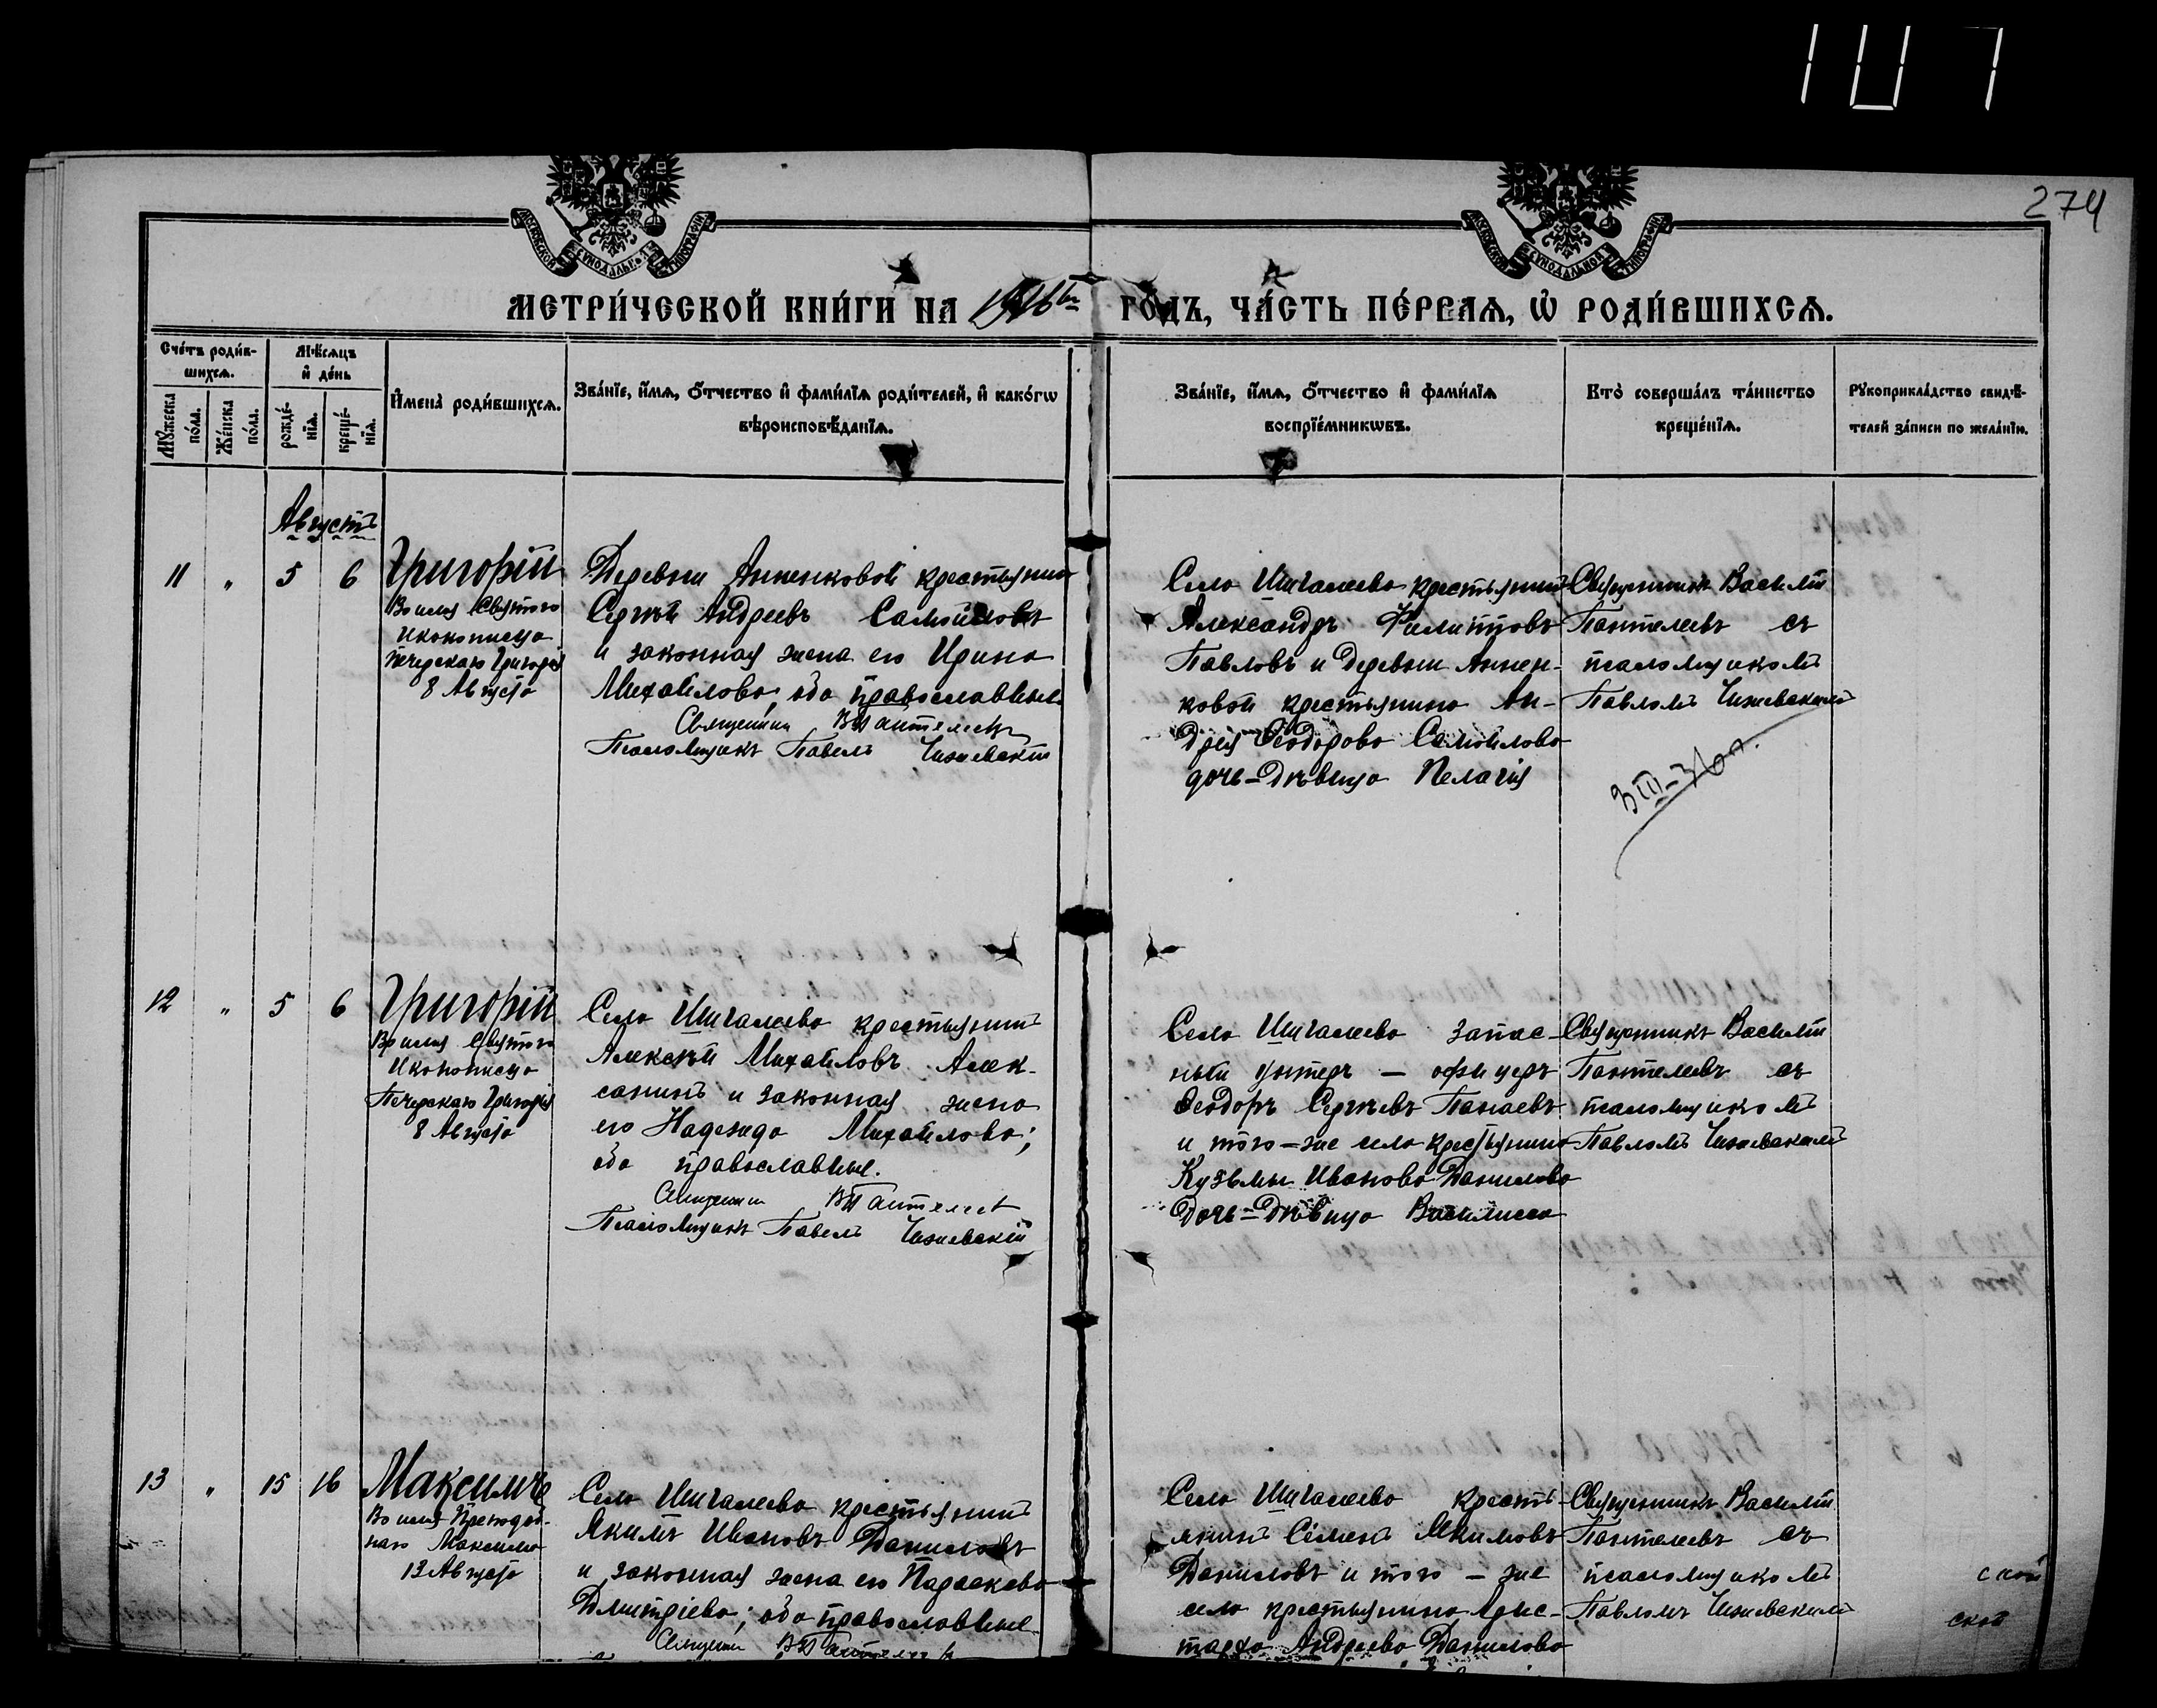 107
274
МОСКОВСКОЙ СѴНОДАЛЬНОЙ ТИПОГРАФІИ
МОСКОВСКОЙ СѴНОДАЛЬНОЙ ТИПОГРАФІИ
МЕТРИ́ЧЕСКОЙ КНИ́ГИ НА 1916й ГО́ДЪ, ЧА́СТЬ ПЕ́РВАѦ, Ѡ҆ РОДИ́ВШИХСѦ.
Сче́тъ роди́в-
шихсѧ.
Мꙋ́жеска по́ла.
Же́нска по́ла.
Мѣ́сѧцъ
и҆ де́нь
рожде́-
нїѧ.
креще́-
нїѧ.
И҆мена̀ роди́вшихсѧ.
Зва́нїе, и҆́мѧ, ѻ҆́тчество и҆ фами́лїѧ роди́телей, и҆ како́гѡ
вѣроисповѣ́данїѧ.
Зва́нїе, и҆́мѧ, ѻ҆́тчество и҆ фами́лїѧ
воспрїе́мникѡвъ.
Кто̀ соверша́лъ та́инство
креще́нїѧ.
Рꙋкоприкла́дство свидѣ́-
телей за́писи по жела́нїю.
Августъ
11 " 5 6
Григорій
Во имя Святого
Иконописца
Печерскаго Григорія
8 Августа
Деревни Анненковой крестьянин
Сергѣй Андреевъ Самойловъ
и законная жена его Ирина
Михайлова; оба православные.
Священник В Пантелеевъ
Псаломщикъ Павелъ Чижевскій
Село Шигалеево крестьянинъ
Александръ Филипповъ
Павловъ и деревни Аннен-
ковой крестьянина Ан-
дрея Ѳеодорова Самойлова
дочь-дѣвица Пелагія
Священникъ Василій
Пантелеевъ съ
псаломщикомъ
Павломъ Чижевскимъ
12 " 5 6
Григорій
Во имя Святого
Иконописца
Печерскаго Григорія
8 Августа
Село Шигалеево крестьянинъ
Алексѣй Михайловъ Алек-
санинъ и законная жена
его Надежда Михайлова;
оба православные.
Священник В Пантелеев
Псаломщикъ Павелъ Чижевскій
Село Шигалеево запас-
ный унтеръ - офицеръ
Ѳеодоръ Сергѣевъ Панаевъ
и того-же села крестьянина
Кузьмы Иванова Данилова
дочь-дѣвица Василиса
Священникъ Василій
Пантелеевъ съ
псаломщикомъ
Павломъ Чижевскимъ
13 " 15 16
Максимъ
Во имя Преподоб-
наго Максима
13 Августа
Село Шигалеево крестьянинъ
Якимъ Ивановъ Даниловъ
и законная жена его Параскева
Дмитріева; оба православные
Священник В Пантелеев
Село Шигалеево кресть-
янинъ Сѣменъ Якимовъ
Даниловъ и того - же
села крестьянина Арис-
тарха Андреева Данилова
Священникъ Василій
Пантелеевъ съ
псаломщикомъ
Павломъ Чижевскимъ
ской